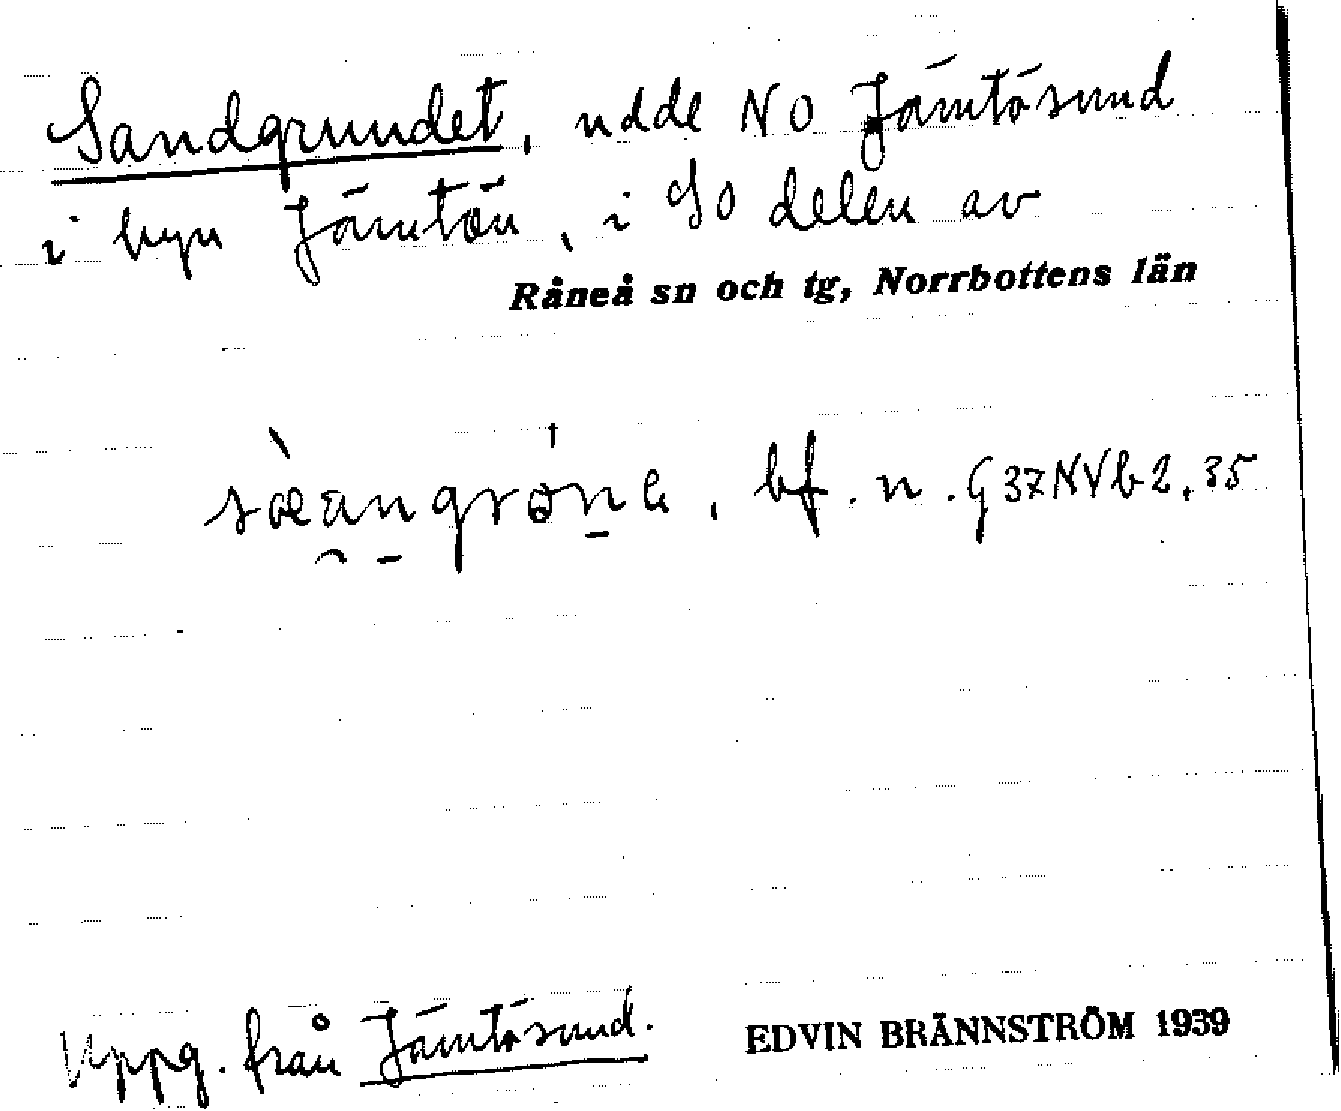 Sandgrundet, udde NO Jämtösund
i byn Jämtön, i SO delen av
Råneå sn och tg, Norrbottens län
bf. n. G37NVb2,35
Uppg. från Jämtösund.
EDVIN BRÄNNSTRÖM 1939